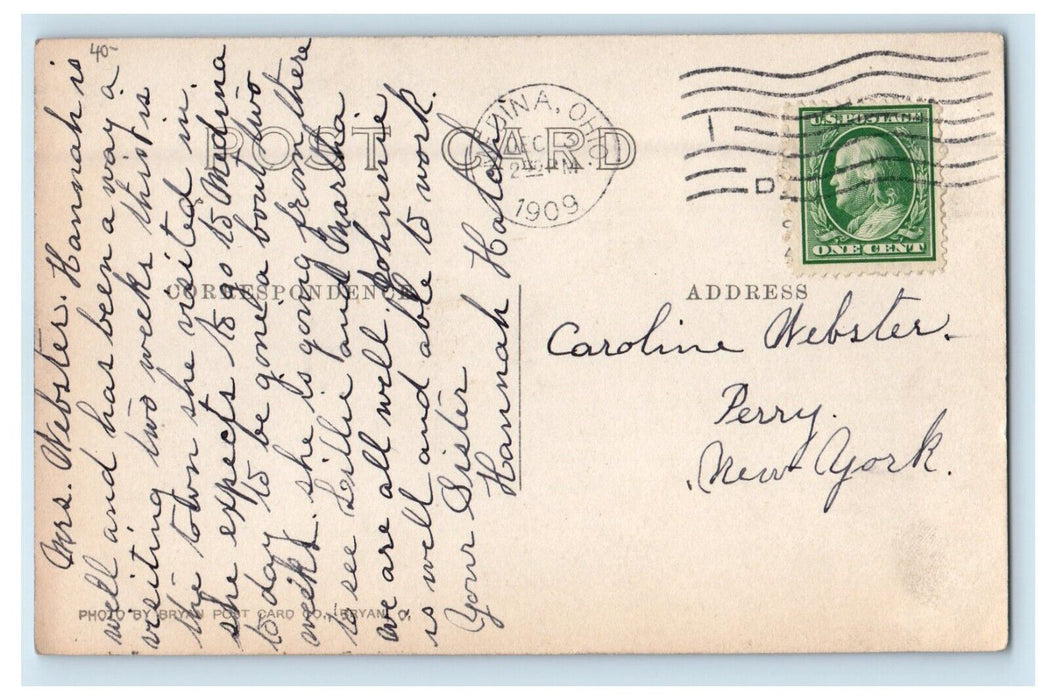 40-
POST CARD
MEDINA, OHIO
DEC 3
2 PM
1909
1
D
U.S. POSTAGE
ONE CENT
CORRESPONDENCE
ADDRESS
Mrs. Webster. Hannah is
well and has been a way a
visiting two weeks this is
the town she visited in.
she expects to go to Medina
to day to be gone a bout two
weeks. she is going from there
to see Lillie and Martha
we are all well Johnnie
is well and able to work.
Your Sister
Hannah Hatch
Caroline Webster.
Perry.
New York.
PHOTO BY BRYAN POST CARD CO., BRYAN, O.